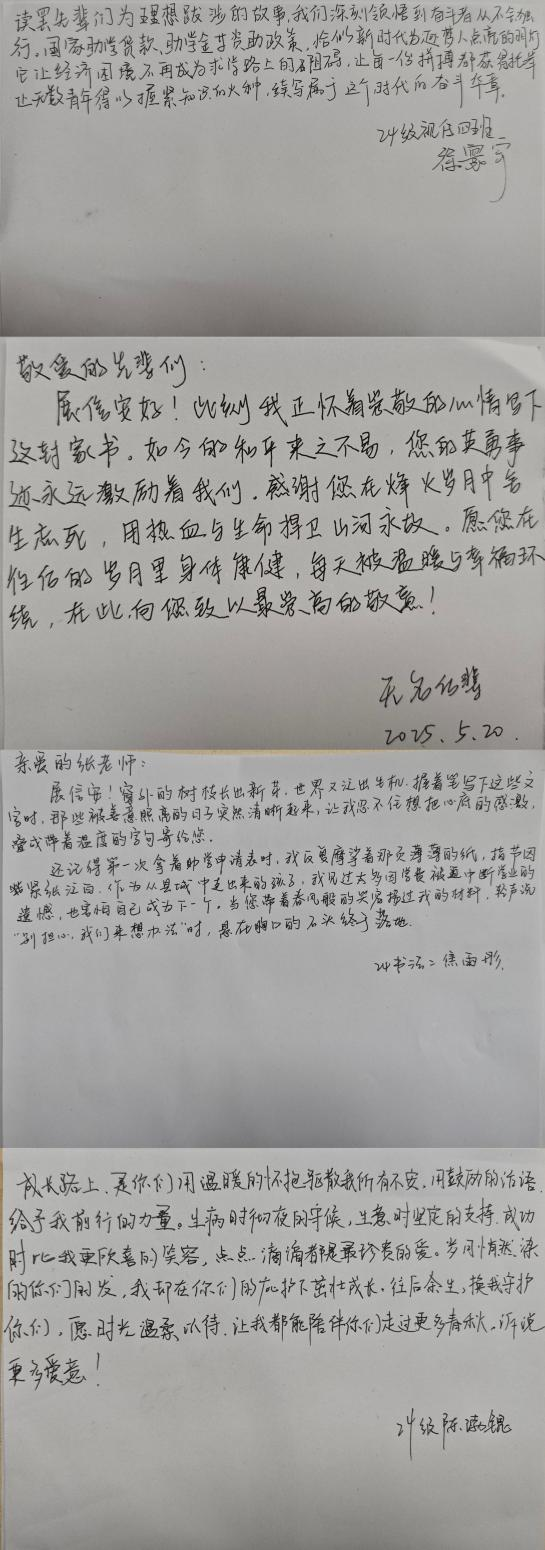 读罢先辈们为理想跋涉的故事,我们深刻领悟到奋斗者从不会独
行。国家助学贷款、助学金等资助政策,恰似新时代为逐梦人点亮的
它让经济困境不再成为求学路上的阻碍,让每一份拼搏都获得托举
让无数青年得以握紧知识的火种,续写属于这个时代的奋斗华章。
24级视传四班
徐
敬爱的先辈们:
展信安好!此刻我正怀着崇敬的心情写下
这封家书。如今的和平来之不易,您的英勇事
迹永远激励着我们。感谢您在烽火岁月中舍
生忘死,用热血与生命捍卫山河永故。愿您在
往后的岁月里身体康健,每天被温暖与幸福环
绕,在此向您致以最崇高的敬意!
无名后辈
2025.5.20.
亲爱的纸老师:
展信安!窗外的树枝长出新芽,世界又泛出生机.握着笔写下这些文
字时,那些被善意照亮的日子突然清晰起来,让我忍不住想把心底的感激,
叠成带着温度的字句寄给您。
还记得第一次拿着助学申请表时,我反复摩挲着那页薄薄的纸,指节因
攥紧纸泛白.作为从县城中走出来的孩子,我见过太多因学费被迫中断学业的
遗憾,也害怕自己成为下一个。当您带着春风般的笑容接过我的材料,轻声说
"别担心,我们来想办法"时,悬在胸口的石头终于落地.
24书法二 焦雨彤.
成长路上,是你们用温暖的怀抱驱散我所有不安,用鼓励的话语,
给予我前行的力量。生病时彻夜的守候,生意时坚定的支持,成功
时比我更欣喜的笑容,点点滴滴都是最珍贵的爱。岁月悄然染
白的你们的发,我却在你们的庇护下茁壮成长。往后余生,换我守护
你们,愿时光温柔以待,让我都能陪伴你们走过更多春秋,诉说
更多爱意!
24级 陈